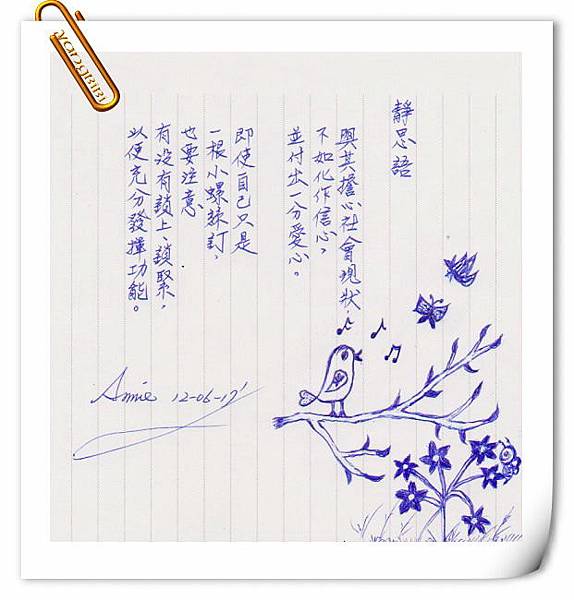 靜思語
與其擔心社會現狀,
不如化作信心,
並付出一分愛心。
即使自己只是
一根小螺絲釘,
也要注意
有沒有鎖上、鎖緊,
以便充分發揮功能。
Annie 12-06-17'